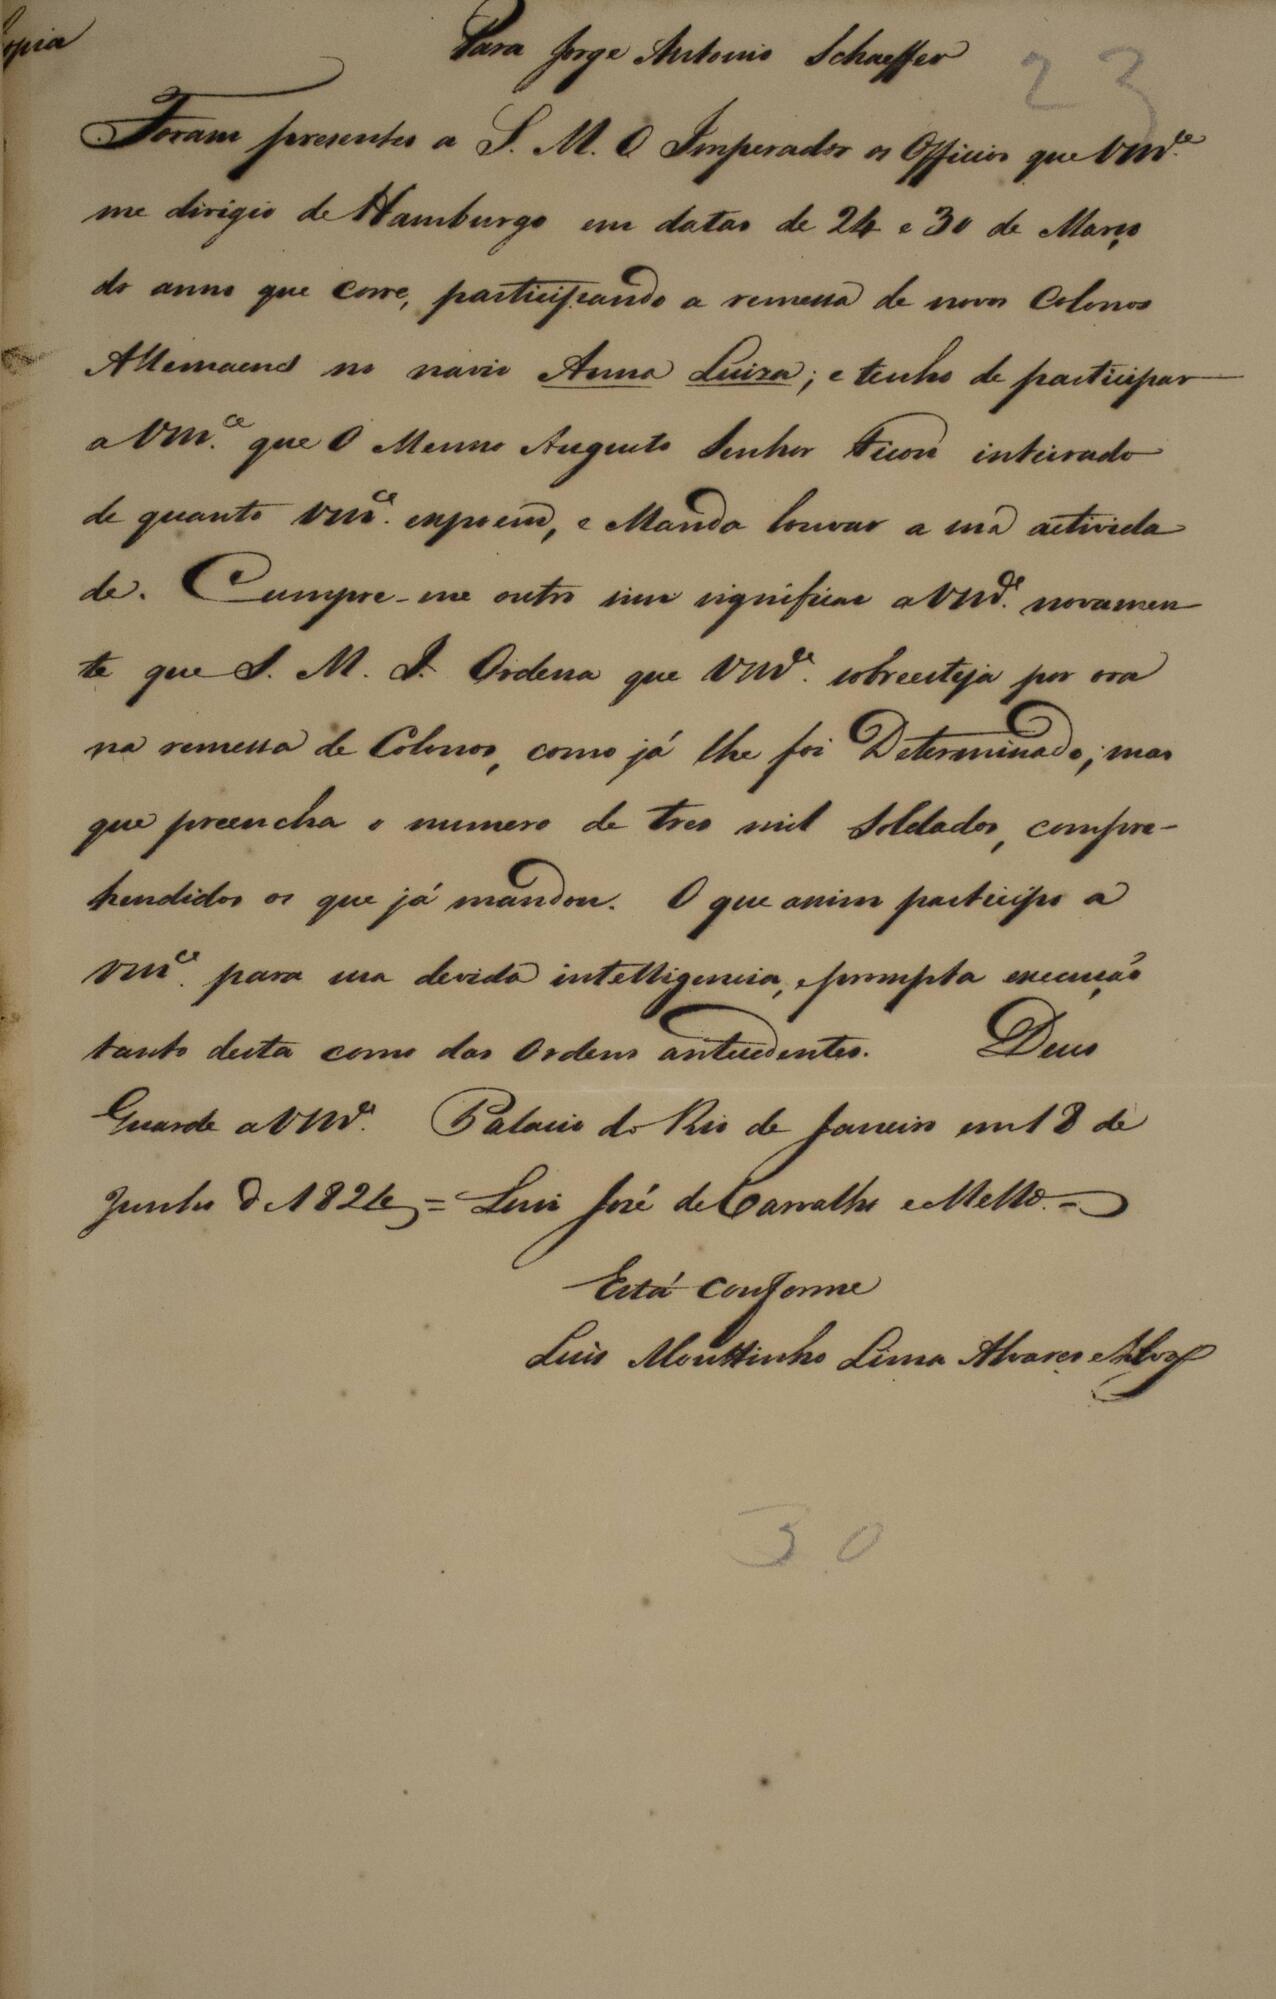 Copia
Para Jorge Antonio Schaeffer
23
Foram presentes a S. M. O Imperador os Officios que VM.ce
me dirigio de Hamburgo em datas de 24 e 30 de Março
do anno que corre, participando a remessa de novos Colonos
Allemaens no navio Anna Luiza; e tenho de participar
a VM.ce que O Mesmo Augusto Senhor Ficou inteirado
de quanto VM.ce expoem, e Manda louvar a sua activida
de. Cumpre-me outro sim significar a VM.ce novamen
te que S. M. I. Ordena que VM.ce sobreesteja por ora
na remessa de Colonos, como já lhe foi Determinado; mas
que preencha o numero de tres mil Soldados, compre-
hendidos os que já mandou. O que assim participo a
VM.ce para sua devida intelligencia, e prompta execução
tanto desta como das Ordens antecedentes. Deus
Guarde a VM.ce Palacio do Rio de Janeiro em 18 de
Junho de 1824 = Luis José de Carvalho e Mello. =
Está conforme
Luis Mouttinho Lima Alvares e Silva
30